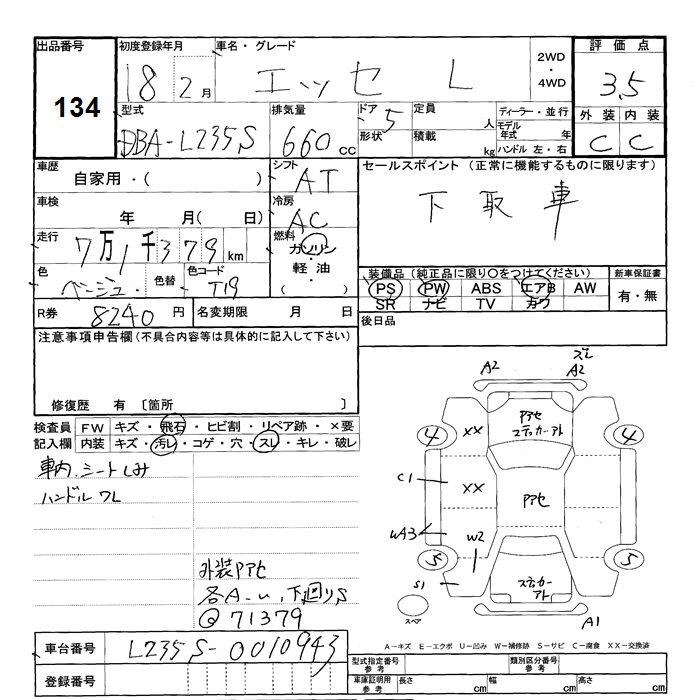 出品番号 134
初度登録年月 18 2月
車名・グレード エッセ L
2WD・4WD
評価点 3.5
型式 DBA-L235S
排気量 660 cc
ドア 5 形状
定員 人
積載 kg
ディーラー・並行
モデル年式 年
ハンドル 左・右
外装 C 内装 C
車歴 自家用・( )
シフト AT
セールスポイント (正常に機能するものに限ります)
下取車
車検 年 月( 日)
冷房 AC
走行 7万1千379 km
燃料 ガソリン・軽油・( )
色 ベージュ 色替 色コード T19
装備品 (純正品に限り○をつけてください)
PS PW ABS エアB AW
SR ナビ TV カワ
新車保証書 有・無
R券 8240円 名変期限 月 日
後日品
注意事項申告欄 (不具合内容等は具体的に記入して下さい)
修復歴 有 〔箇所 〕
検査員記入欄
FW キズ・飛石・ヒビ割・リペア跡・×要
内装 キズ・汚レ・コゲ・穴・スレ・キレ・破レ
車内.シートしみ
ハンドル ワレ
外装PPアセ
各A-u,下回りS
@71379
A2 ズレ A2
PPアセ ステッカーアト
4 XX 4
C1 XX PPアセ
WA3 W2
5 5
S1 ステッカーアト
スペア A1
A-キズ E-エクボ U-凹み W-補修跡 S-サビ C-腐食 XX-交換済
車台番号 L235S-0010943
登録番号
型式指定番号 参考 類別区分番号 参考
車庫証明用 参考 長さ cm 幅 cm 高さ cm